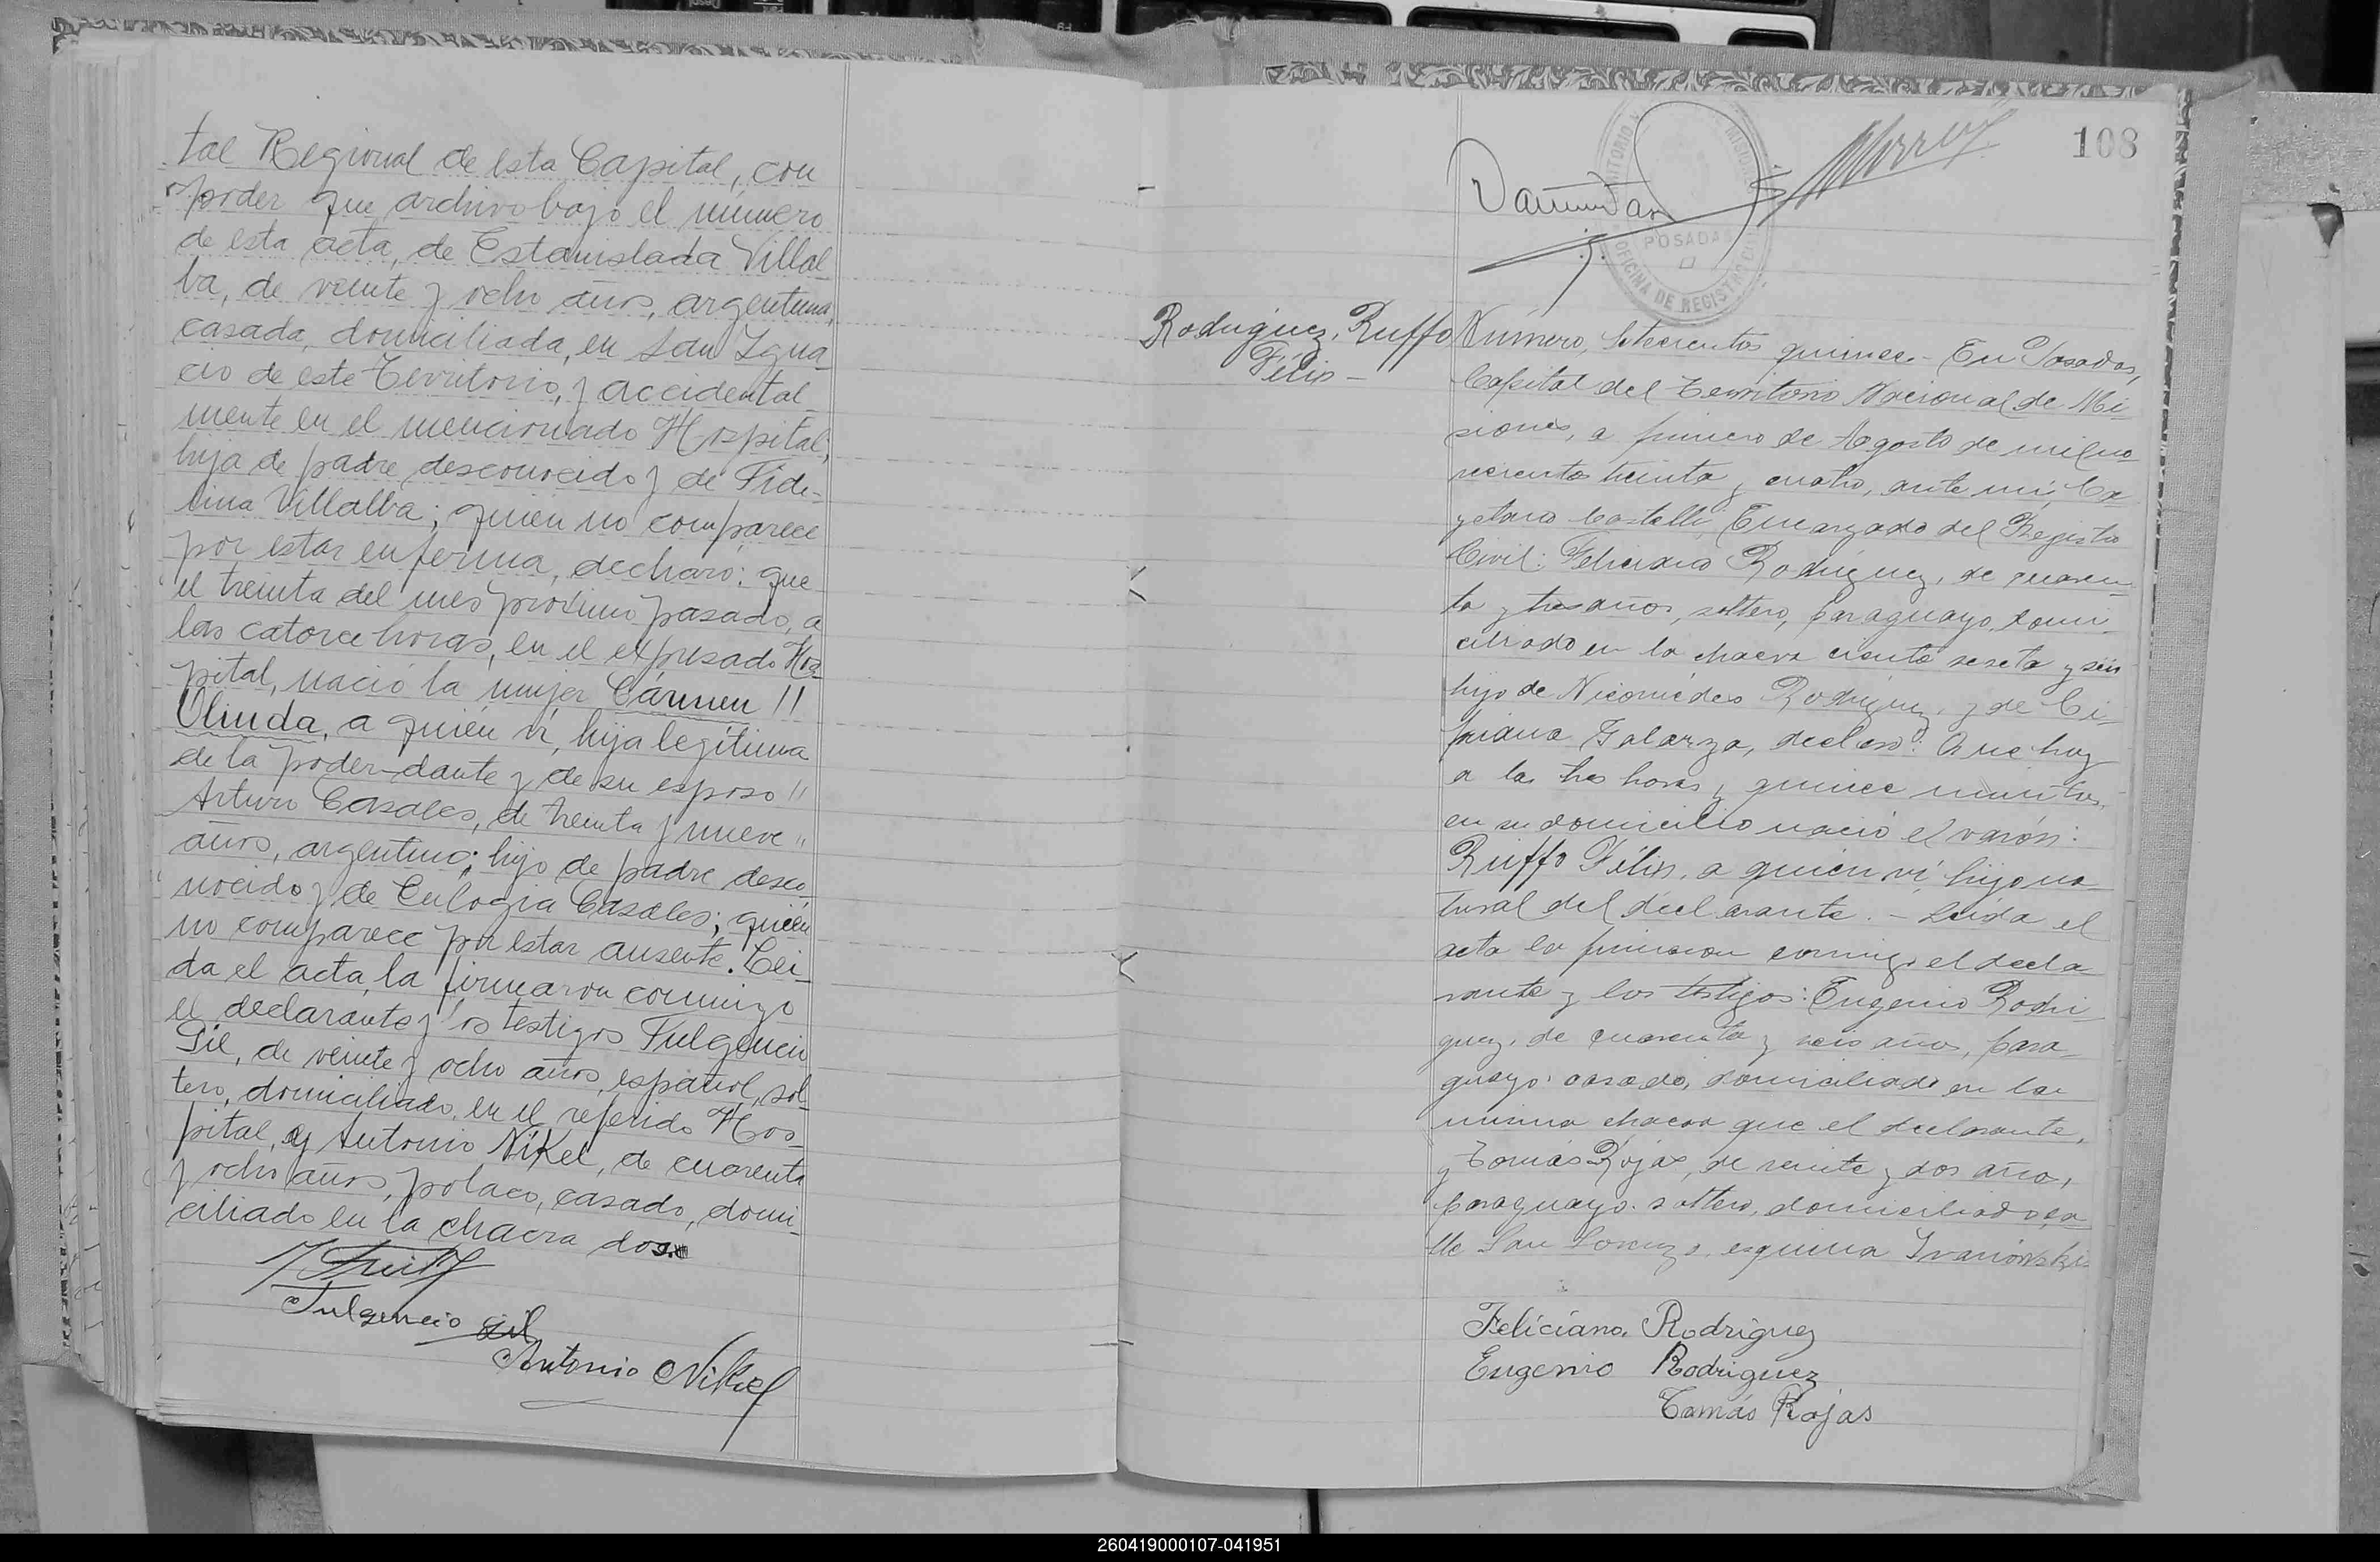 tal Regional de esta Capital, con
poder que archivo bajo el número
de esta acta, de Estanislada Villal
ba, de veinte y ocho años, argentina,
casada, domiciliada, en San Igna
cio de este Territorio, y accidental
mente en el mencionado Hospital;
hija de padre desconocido y de Fide-
lina Villalba; quién no comparece
por estar enferma, declaró: que
el treinta del mes próximo pasado, a
las catorce horas, en el expresado Hos
pital, nació la mujer Cármen "
Olinda, a quién ví, hija legítima
de la poder-dante y de su esposo "
Arturo Casales, de treinta y nueve "
años, argentino; hijo de padre desco
nocido y de Eulogia Casales; quién
no comparece por estar ausente. Lei-
da el acta, la firmaron conmigo
el declarante y los testigos Fulgencio
Gil, de veinte y ocho años, español, sol-
tero, domiciliado en el referido Hos-
pital, y Antonio Nikel, de cuarenta
y ocho años, polaco, casado, domi-
ciliado en la chacra dos.
Fulgencio Gil
Antonio Nikel
108
POSADAS
OFICINA DE REGISTRO CIVIL
Rodriguez, Ruffo
Félix -
Número, Setecientos quince. - En Posadas,
Capital del Territorio Nacional de Mi
siones, a primero de Agosto de mil no
vecientos treinta y cuatro, ante mí, Ca
yetano Castelli, Encargado del Registro
Civil: Feliciano Rodriguez, de cuaren-
ta y tres años, soltero, paraguayo, domi
ciliado en la chacra ciento seseta y seis
hijo de Nicomédes Rodriguez, y de Ci-
priana Galarza, declaró: Que hoy
a las tres horas y quince minutos,
en su domicilio nació el varón:
Ruffo Félix, a quién ví, hijo na
tural del declarante. - Leida el
acta la firmaron conmigo el decla
rante y los testigos: Eugenio Rodri
guez, de cuarenta y seis años, para-
guayo, casado, domiciliado en la
misma chacra que el declarante,
y Tomás Rojas, de veinte y dos años,
paraguayo, soltero, domiciliado ca
lle San Lorenzo, esquina Ivanówski
Feliciano Rodriguez
Eugenio Rodriguez
Tomás Rojas
260419000107-041951